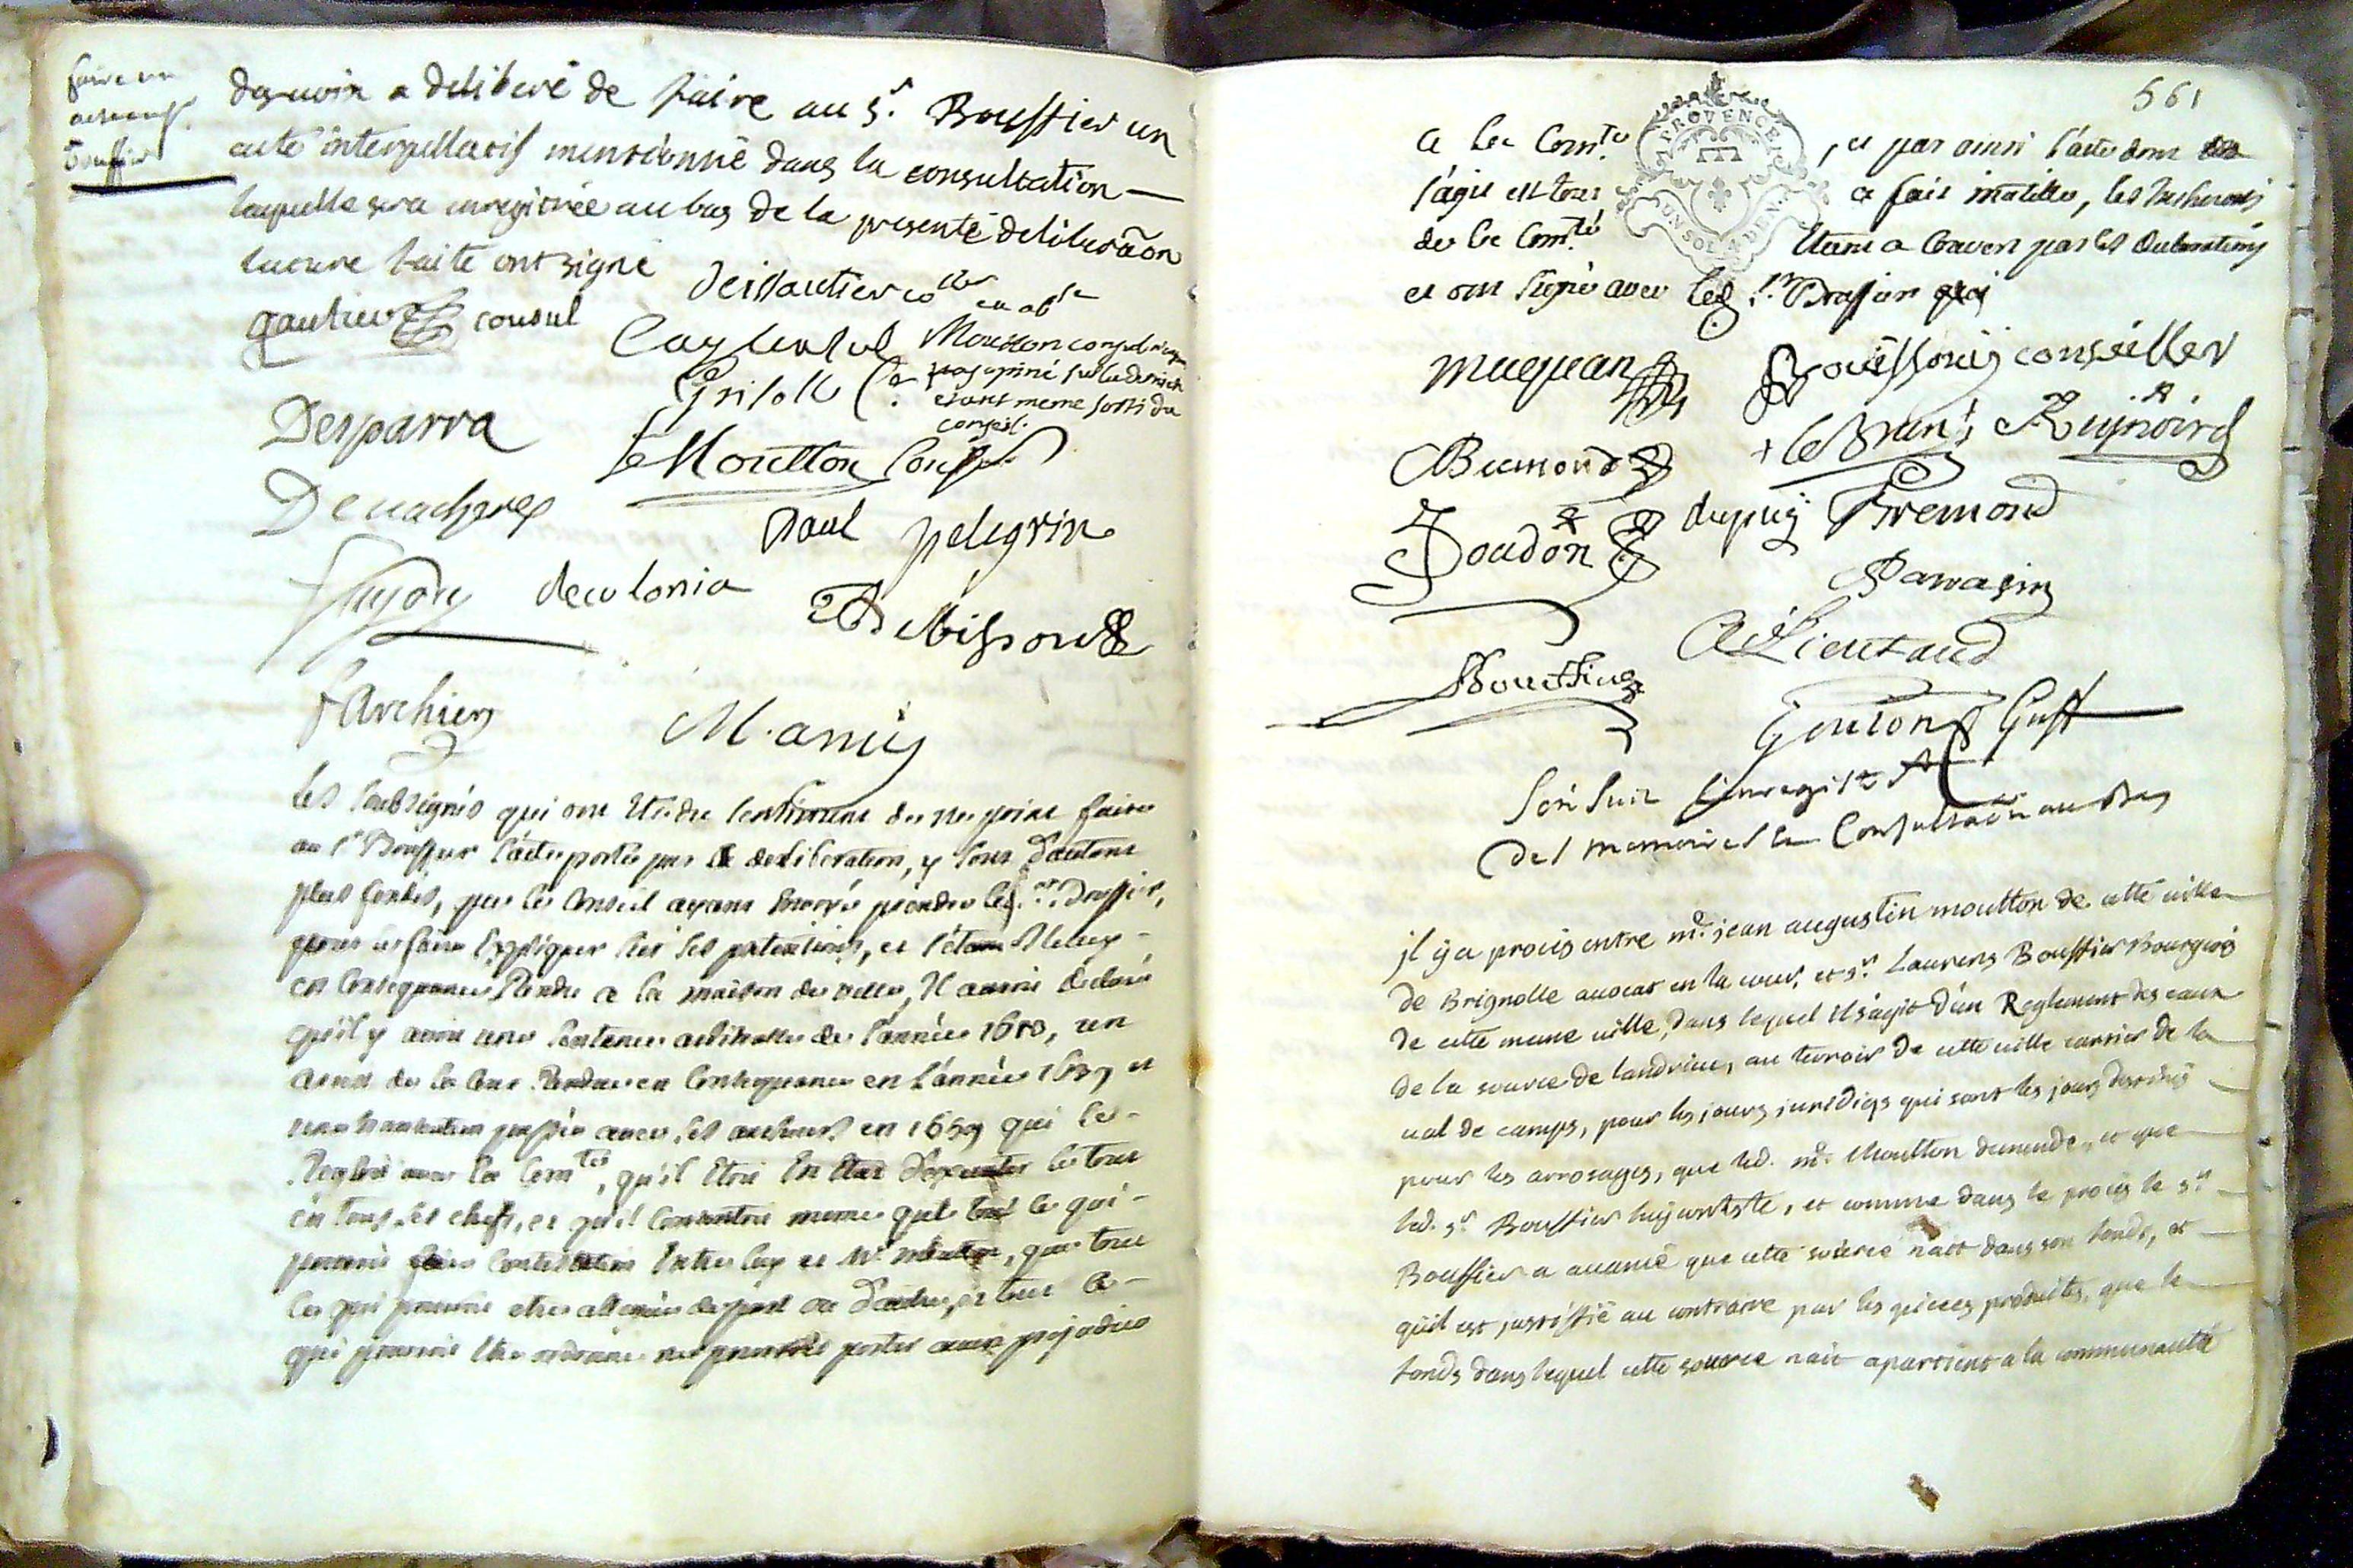 faire un
acte au sr
Bouffier
des voix a deliberé de faire au sr. Bouffier un
acte interpellatif mentionné dans la consultation
laquelle sera enregistrée au bas de la presente deliberaõn
lecture faite ont signé
gautier consul
Deissautier
Desparra
Grisolle
Moutton consul n'ayant
pas opiné sur la derniere
etant meme sorti du
conseil.
Moutton
Devachere
Paul pelegrin
decolonia
Archier
M. amic
les soubsignés qui ont été du sentiment de ne point faire
au sr Bouffier l'acte porté par la deliberation, y sont d'autant
plus fondés, que le Conseil ayant envoyé prendre led. sr. Bouffier,
pour se faire expliquer sur ses pretentions, et s'étant
en consequance rendu a la maison de ville, Il auroit declaré
qu'il y avoit une sentence arbitralle de l'année 1610, un
arrest de la Cour rendu en consequance en l'année 1639 et
une transaction passée avec ses autheurs en 1659 qui le
regloit avec la Comté, qu'il étoit en état d'executer le tout
en tous ses chefs, et qu'il consentoit meme que tout ce qui
pourroit faire contestation entre luy et Mr Moutton, que tout
ce qui pourroit etre allegué de part ou d'autre, et tout ce
qui pourroit etre ordonné ne pourroit porter aucun prejudice
561
PROVENCE
CONSOL. & DEN.
a la Comté, et par ainsi l'acte dont
s'agit est tout a fait inutille, les
de la Comté étant a couvert par les declarations
et ont signé avec led. sr. Bouffier
maquean
Rouissony conseiller
Bremond
le Brun
Reynoird
Boudon
dupuy
Bremond
Parrasin
Lieutaud
Bouffier
Goujon Greff
S'en suit l'enregistrt
del memoire et la Consultaõn au bas
jl y a procès entre me. jean augustin moutton de cette ville
de Brignolle avocat en la cour, et sr. Laurens Bouffier Bourgeois
de cette meme ville, dans lequel Il s'agit d'un Reglement des eaux
de la source de landrieu, au terroir de cette ville cartier de la
val de camps, pour les jours juridiqs qui sont les jours destinés
pour les arrosages, que led. me. Moutton demande, et que
led. sr. Bouffier luy conteste, et comme dans le procès le sr.
Bouffier a avancé que cette source nait dans son fonds, et
qu'il est justiffié au contraire par les pieces produites, que le
fonds dans lequel cette source nait apartient a la communauté